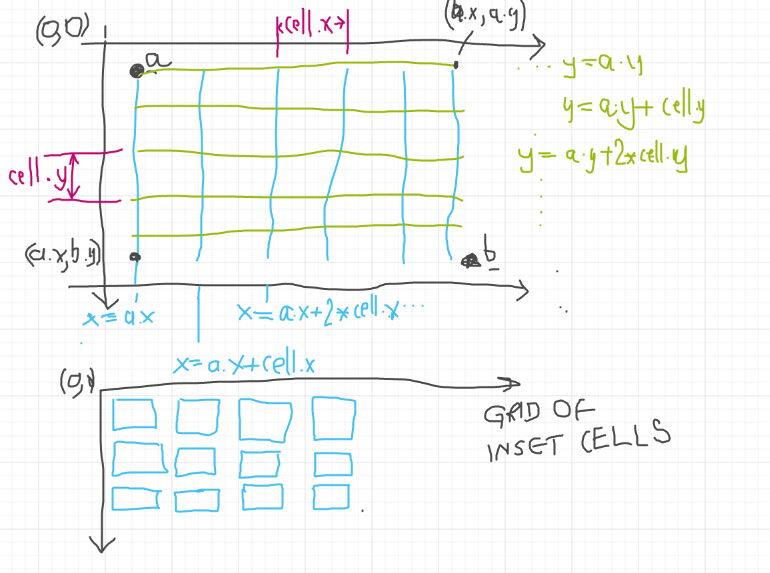 (0,0)
cell.x
(b.x, a.y)
a
.... y=a.y
y=a.y+cell.y
y=a.y+2*cell.y
cell.y
(a.x,b.y)
b
x=a.x
x=a.x+2*cell.x...
x=a.x+cell.x
GRID OF
INSET CELLS